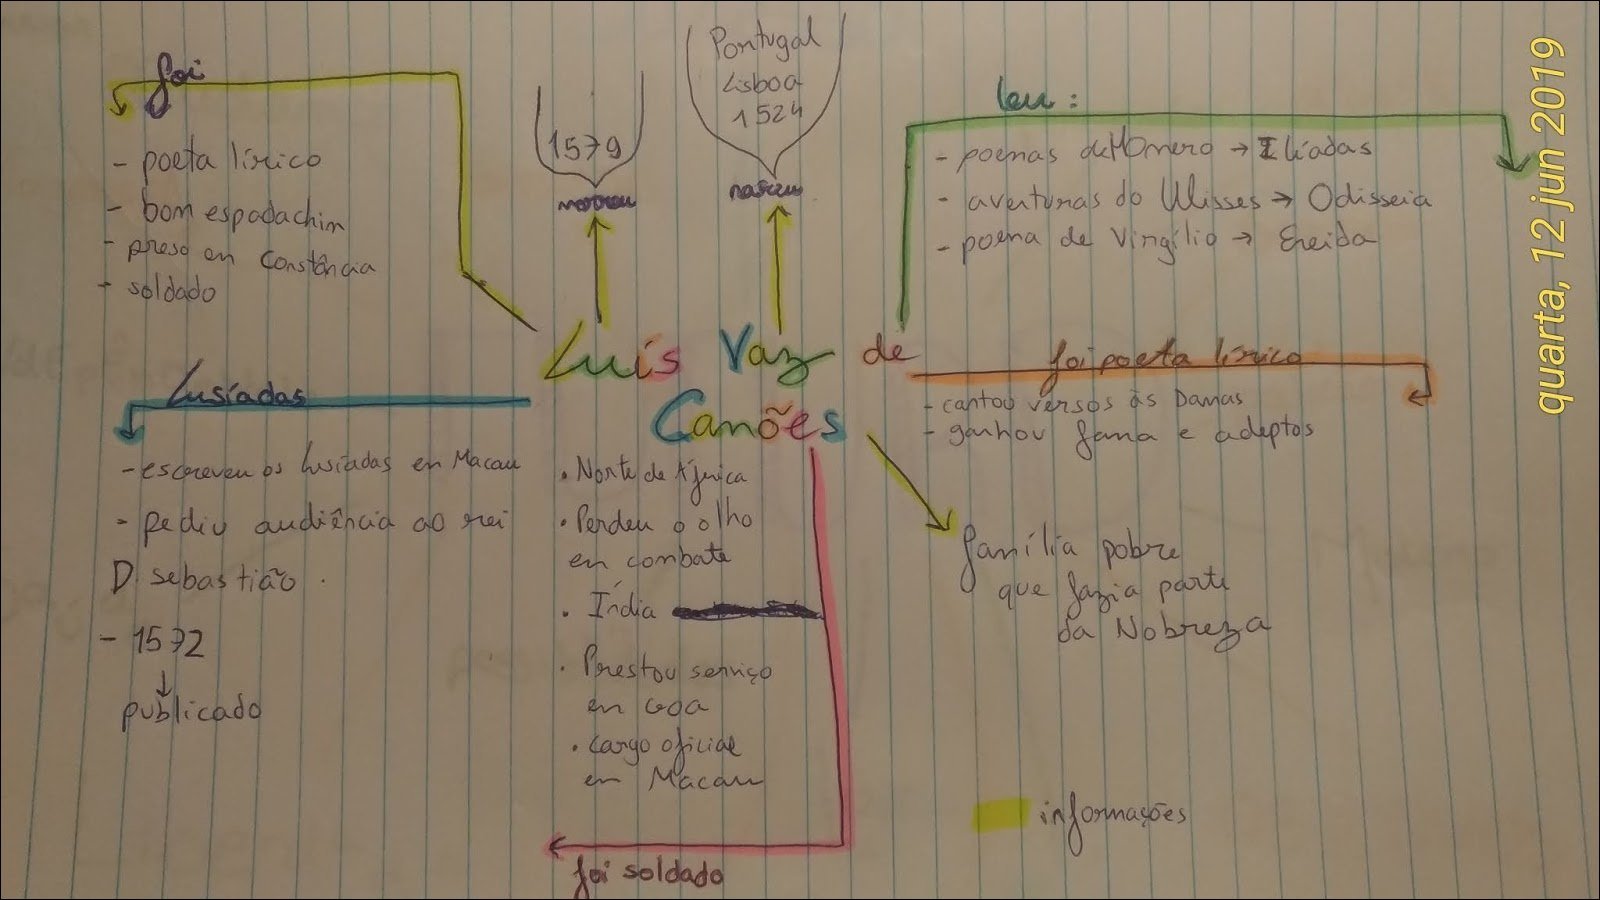 foi
- poeta lírico
- bom espadachim
- preso em Constância
- soldado
1579
morreu
Portugal
Lisboa
1524
nasceu
leu :
- poemas de Homero → Ilíadas
- aventuras do Ulisses → Odisseia
- poema de Virgílio → Eneida
quarta, 12 jun 2019
Luís Vaz de
Camões
Lusíadas
- escreveu os Lusíadas em Macau
- pediu audiência ao rei
D sebastião .
- 1572
↓
publicado
• Norte de África
• Perdeu o olho
em combate
• Índia
• Prestou serviço
em Goa
• cargo oficial
em Macau
foi soldado
foi poeta lírico
- cantou versos às Damas
- ganhou fama e adeptos
família pobre
que fazia parte
da Nobreza
informações